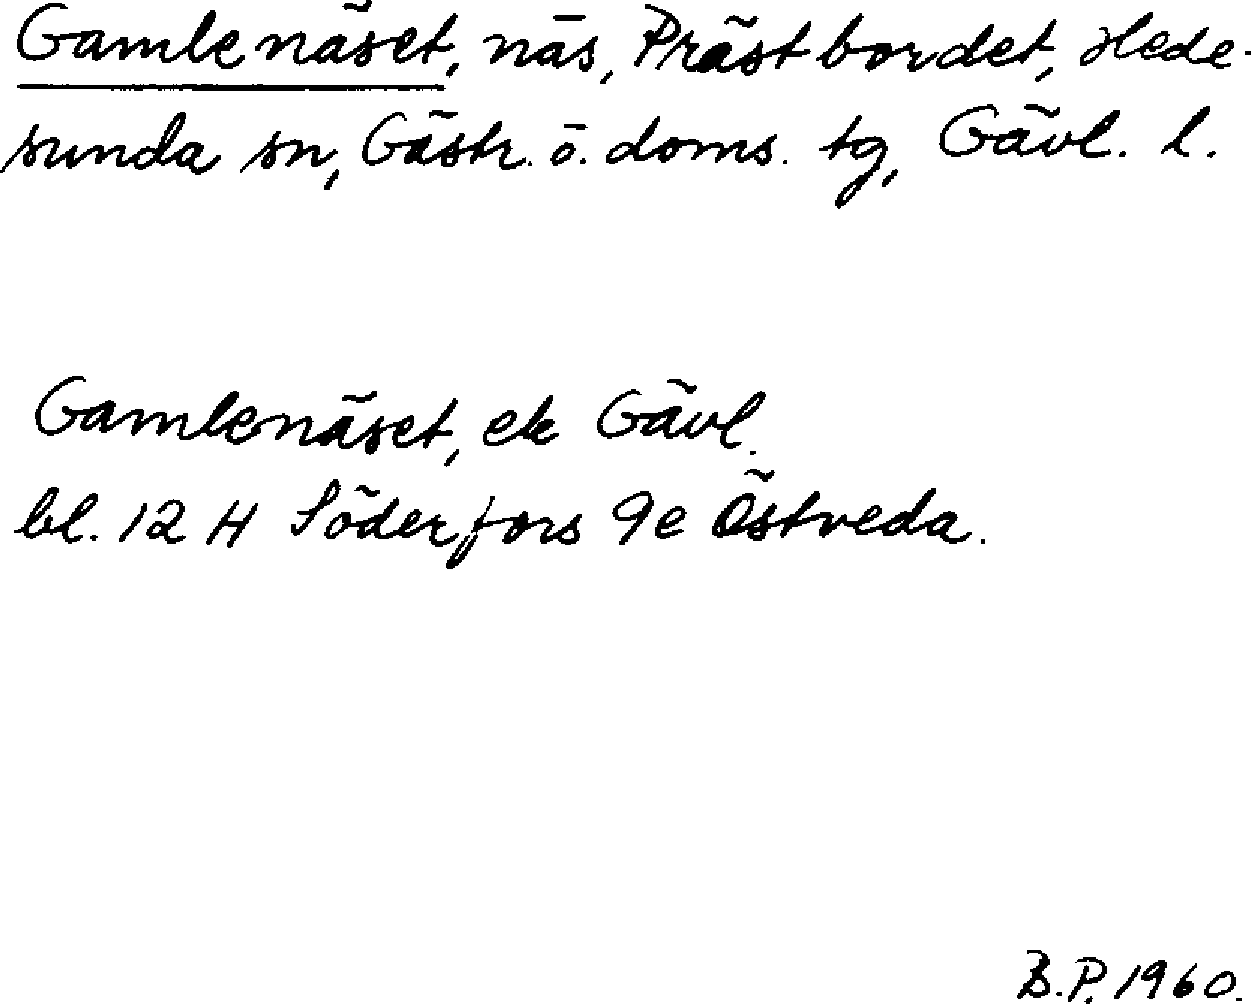 Gamlenäset, näs, Prästbordet, Hede-
sunda sn, Gästr. ö. doms. tg, Gävl. l.
Gamlenäset, ek Gävl.
bl. 12 H Söderfors 9e Östveda.
B.P. 1960.